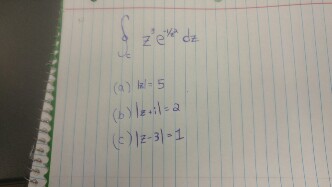 ∮_C z³ e^(-1/z²) dz
(a) |z| = 5
(b) |z+i| = 2
(c) |z-3| = 1